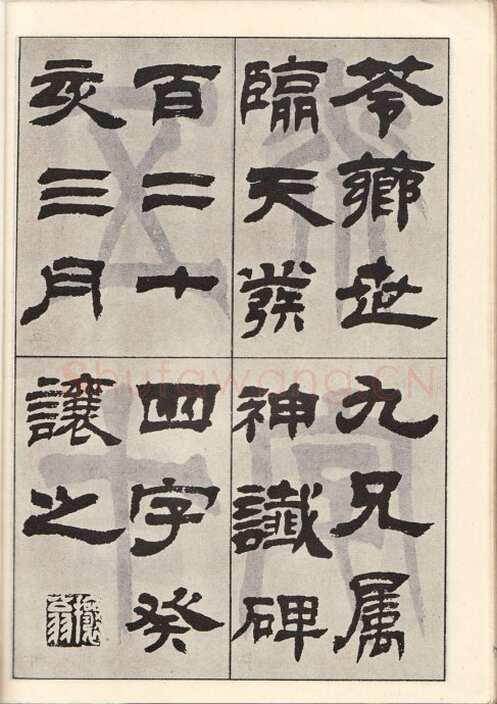 苓薌世九兄属
臨天發神讖碑
百二十四字癸
亥三月讓之
攘翁
Shufawang.CN